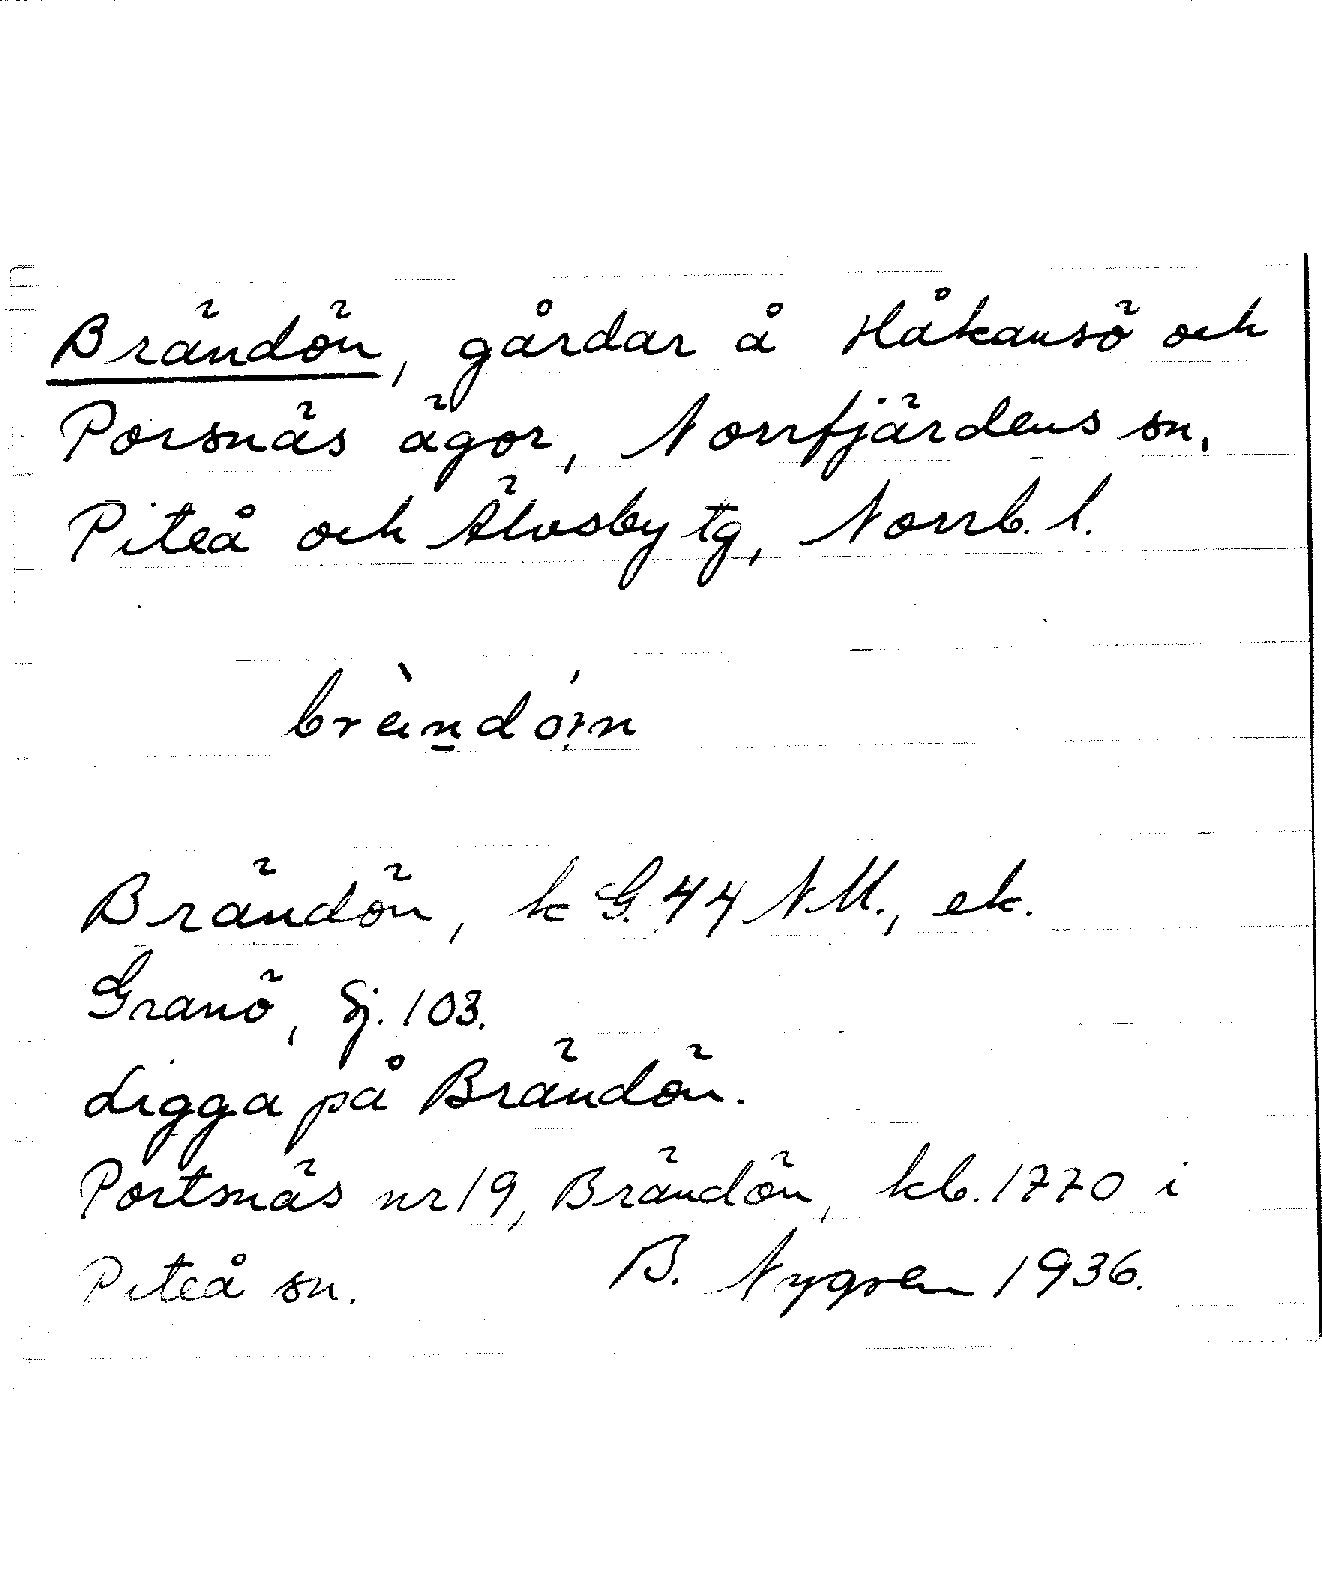 Brändön, gårdar å Håkansö och
Porsnäs ägor, Norrfjärdens sn,
Piteå och Älvsby tg, Norrb. l.
brèindóːn
Brändön, k G. 44 NM., ek.
Granö, Sj. 103.
Ligga på Brändön.
Portsnäs nr 19, Brändön, kb. 1770 i
Piteå sn. B. Nygren 1936.